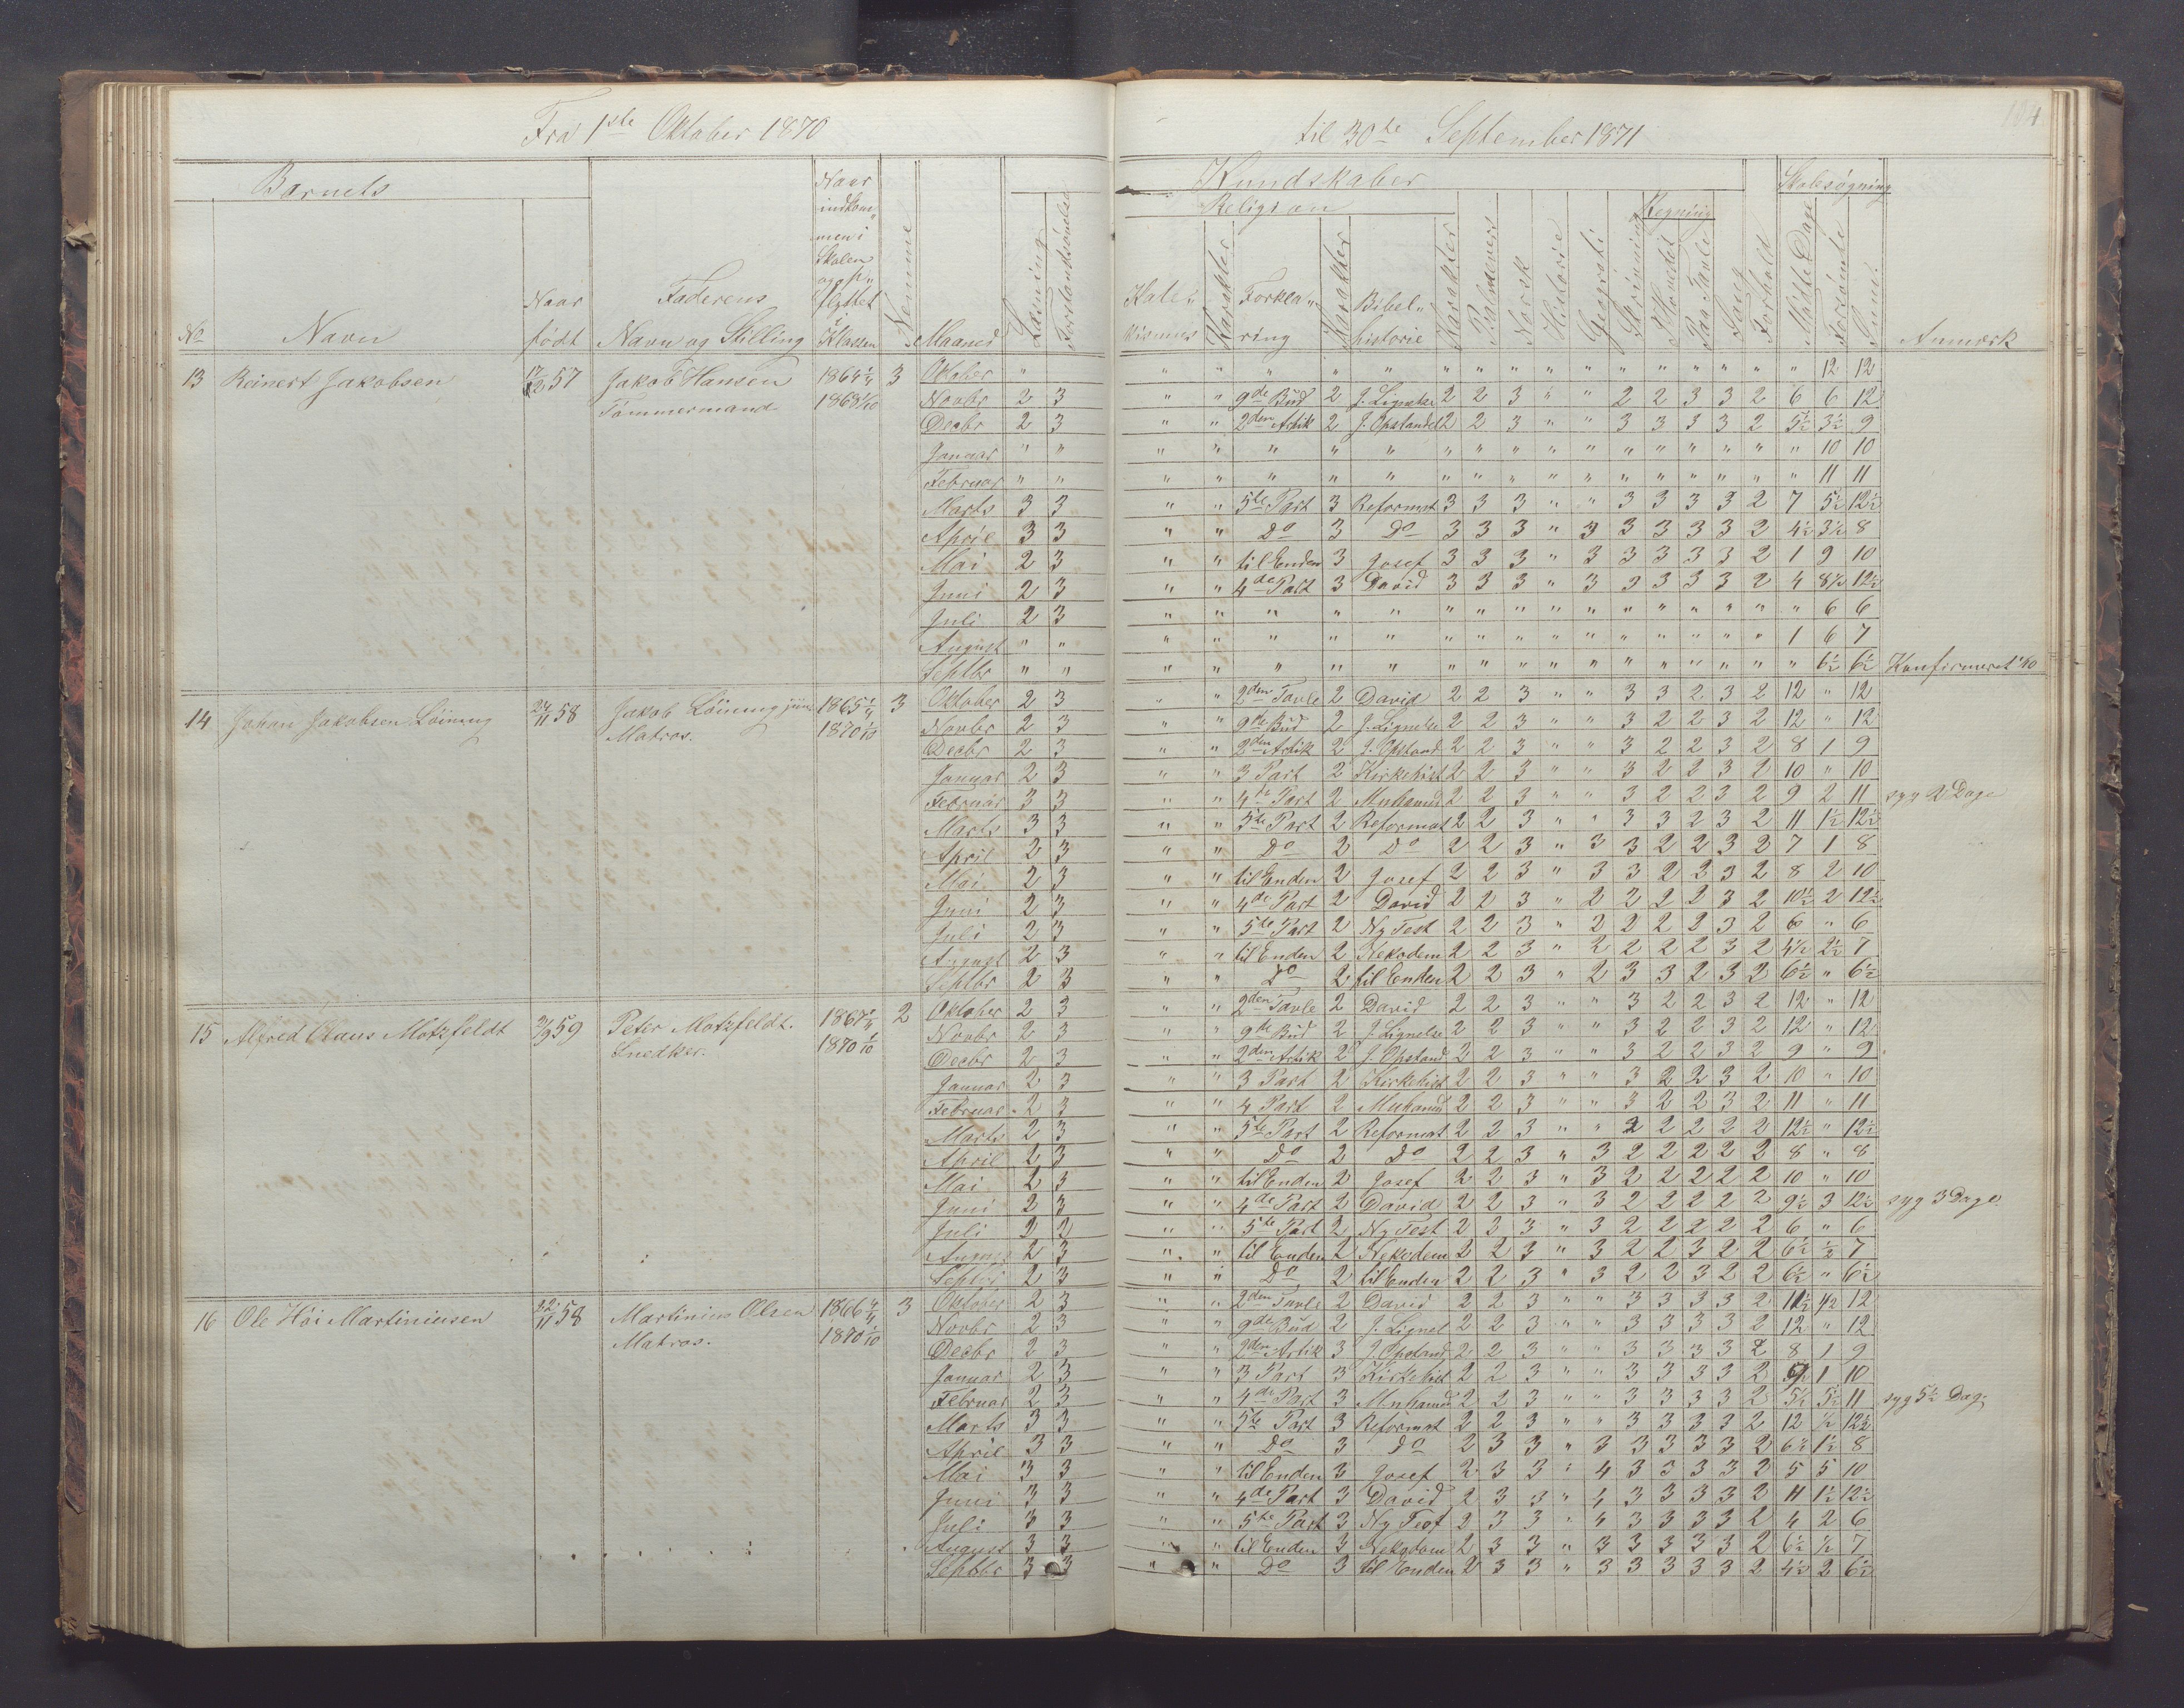 Fra 1ste Oktober 1870 til 30te September 1871
184
Barnets
Kundskaber
Skolesøgning
Religion
Regning
No Navn Naar født Faderens Navn og Stilling Naar indkommen i Skolen og opflyttet i Klassen Nemme Maaned Læsning Forstandsøvelse Katekismus Karakter Forklaring Karakter Bibelhistorie Karakter Psalmevers Norsk Historie Geografi Skrivning I Hovedet Paa Tavle Sang Forhold Mødte Dage Forsømte Sum. Anmærk
13 Reinert Jakobsen 17/12 57 Jakob Hansen 1864 1/4 3 Oktober " " " " " " " " " " " " " " " " " 12 12
Tømmermand 1868 1/10 Novbr 2 3 " " 9de Bud 2 J. Lignelse 2 2 3 " " 2 2 3 3 2 6 6 12
Decbr 2 3 " " 2den Artik 2 J. Opstandel 2 2 3 " " 3 3 3 3 2 5½ 3½ 9
Januar " " " " " " " " " " " " " " " " " " 10 10
Februar " " " " " " " " " " " " " " " " " " 11 11
Marts 3 3 " " 5te Part 3 Reformat 3 3 3 " " 3 3 3 3 2 7 5½ 12½
April 3 3 " " Do 3 Do 3 3 3 " 3 3 3 3 3 2 4½ 3½ 8
Mai 2 3 " " til Enden 3 Josef 3 3 3 " 3 3 3 3 3 2 1 9 10
Juni 2 3 " " 4de Part 3 David 3 3 3 " 3 3 3 3 3 2 4 8½ 12½
Juli 2 3 " " " " " " " " " " " " " " " " 6 6
August " " " " " " " " " " " " " " " " " 1 6 7
Septbr " " " " " " " " " " " " " " " " " " 6½ 6½ Konfirmeret 1/10
14 Johan Jakobsen Löining 24/11 58 Jakob Löining jun 1865 1/4 3 Oktober 2 3 " " 2den Tavle 2 David 2 2 3 " " 3 3 2 3 2 12 " 12
Matros. 1870 1/10 Novbr 2 3 " " 9de Bud 2 J. Lignelse 2 2 3 " " 3 2 2 3 2 12 " 12
Decbr 2 3 " " 2den Artik 2 J. Opstand 2 2 3 " " 3 2 2 3 2 8 1 9
Januar 2 3 " " 3 Part 2 Kirkehist 2 2 3 " " 3 2 2 3 2 10 " 10
Februar 3 3 " " 4de Part 2 Muhamed 2 2 3 " " 3 2 2 3 2 9 2 11 syg 2 Dage
Marts 3 3 " " 5te Part 2 Reformat 2 2 3 " " 3 3 2 3 2 11 1½ 12½
April 2 3 " " Do 2 Do 2 2 3 " 3 3 2 2 3 2 7 1 8
Mai 2 3 " " til Enden 2 Josef 2 2 3 " 3 3 2 2 3 2 8 2 10
Juni 2 3 " " 4de Part 2 David 2 2 3 " 2 2 2 2 3 2 10½ 2 12½
Juli 2 3 " " 5te Part 2 Ny Test 2 2 3 " 2 2 2 2 3 2 6 " 6
August 2 3 " " til Enden 2 Nekodem 2 2 3 " 2 2 2 2 3 2 4½ 2½ 7
Septbr 2 3 " " Do 2 til Enden 2 2 3 " 2 3 3 2 3 2 6½ " 6½
15 Alfred Claus Motzfeldt 3/9 59 Peter Motzfeldt. 1867 1/4 2 Oktober 2 3 " " 2den Tavle 2 David 2 2 3 " " 3 2 2 3 2 12 " 12
Snedker. 1870 1/10 Novbr 2 3 " " 9de Bud 2 J. Lignelse 2 2 3 " " 3 2 2 3 2 12 " 12
Decbr 2 3 " " 2den Artik 2 J. Opstand 2 2 3 " " 3 2 2 3 2 9 " 9
Januar 2 3 " " 3 Part 2 Kirkehist 2 2 3 " " 3 2 2 3 2 10 " 10
Februar 2 3 " " 4 Part 2 Muhamed 2 2 3 " " 3 2 2 3 2 11 " 11
Marts 2 3 " " 5te Part 2 Reformat 2 2 3 " " 2 2 2 2 2 12½ " 12½
April 2 3 " " Do 2 Do 2 2 3 " 3 2 2 2 2 2 8 " 8
Mai 2 3 " " til Enden 2 Josef 2 2 3 " 3 2 2 2 2 2 10 " 10
Juni 2 3 " " 4de Part 2 David 2 2 3 " 3 2 2 2 2 2 9½ 3 12½ syg 3 Dage
Juli 2 2 " " 5te Part 2 Ny Test 2 3 3 " 3 2 2 2 2 2 6 " 6
August 2 3 " " til Enden 2 Nekodem 2 2 3 " 3 2 2 3 2 2 6½ ½ 7
Septbr 2 3 " " Do 2 til Enden 2 2 3 " 3 2 2 3 2 2 6½ " 6½
16 Ole Höi Martiniusen 22/11 58 Martinius Olsen 1866 4/4 3 Oktober 2 3 " " 2den Tavle 2 David 2 2 3 " " 3 3 3 3 2 11½ ½ 12
Matros. 1870 1/10 Novbr 2 3 " " 9de Bud 2 J. Lignel 2 2 3 " " 3 3 3 3 2 12 " 12
Decbr 2 3 " " 2den Artik 3 J. Opstand 2 2 3 " " 3 3 3 3 2 8 1 9
Januar 2 3 " " 3 Part 3 Kirkehist 2 2 3 " " 3 3 3 3 2 9 1 10
Februar 2 3 " " 4de Part 3 Muhamed 2 2 3 " " 3 3 3 3 2 5½ 5½ 11 syg 5½ Dag
Marts 3 3 " " 5te Part 3 Reformat 2 2 3 " " 3 3 3 3 2 12 ½ 12½
April 3 3 " " Do 3 Do 2 3 3 " 3 3 3 3 3 2 6½ 1½ 8
Mai 3 3 " " til Enden 3 Josef 2 3 3 " 4 3 3 3 3 2 5 5 10
Juni 3 3 " " 4de Part 3 David 2 3 3 " 4 3 3 3 3 2 11 1½ 12½
Juli 3 3 " " 5te Part 3 Ny Test 2 3 3 " 4 3 3 3 3 2 4 2 6
August 3 3 " " til Enden 3 Nekodem 2 3 3 " 3 3 3 3 3 2 6½ ½ 7
Septbr 3 3 " " Do 3 til Enden 2 3 3 " 3 3 3 3 3 2 4½ 2 6½